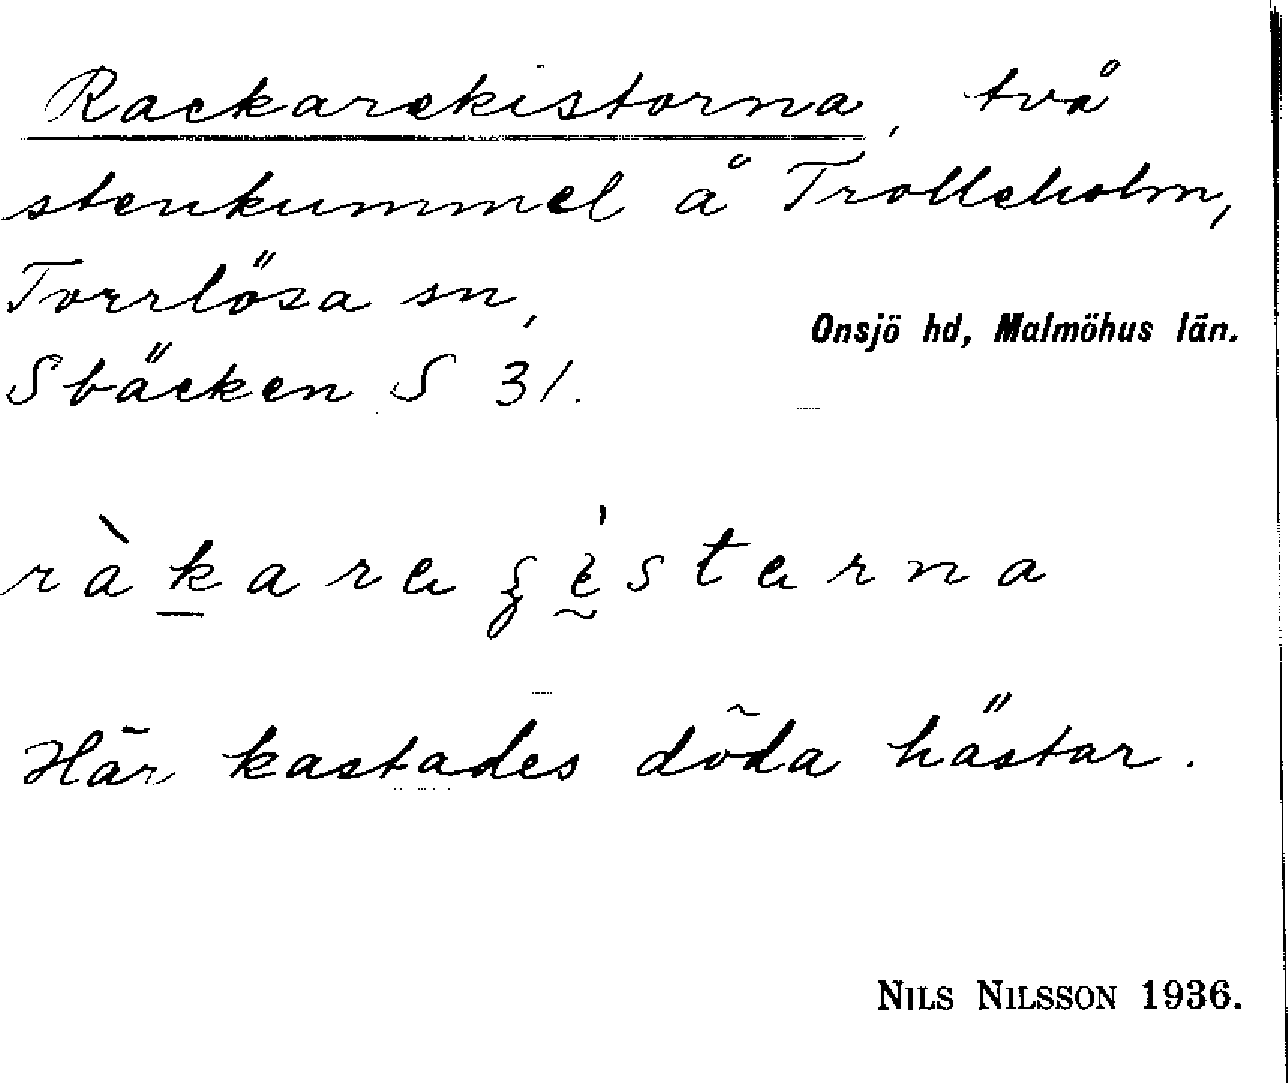 Rackarekistorna, två
stenkummel å Trolleholm,
Torrlösa sn,
Onsjö hd, Malmöhus län.
Sbäcken S 31.
Här kastades döda hästar.
NILS NILSSON 1936.